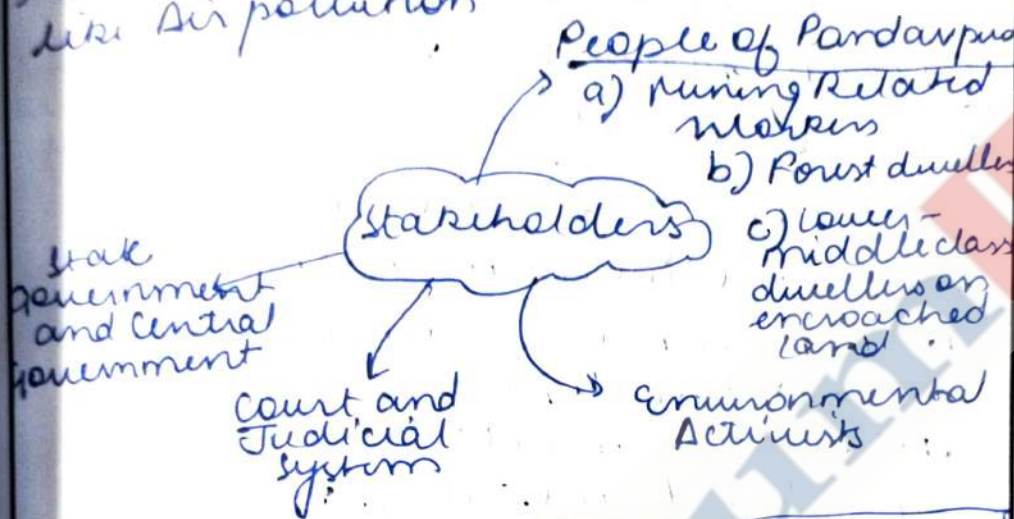 like Air pollution
People of Pandavpu
a) Mining Related
Workers
b) Forest dwellers
c) Lower-
middle class
dwellers on
encroached
land.
Stakeholders
State
Government
and Central
Government
Court and
Judicial
System
Environmental
Activists
um